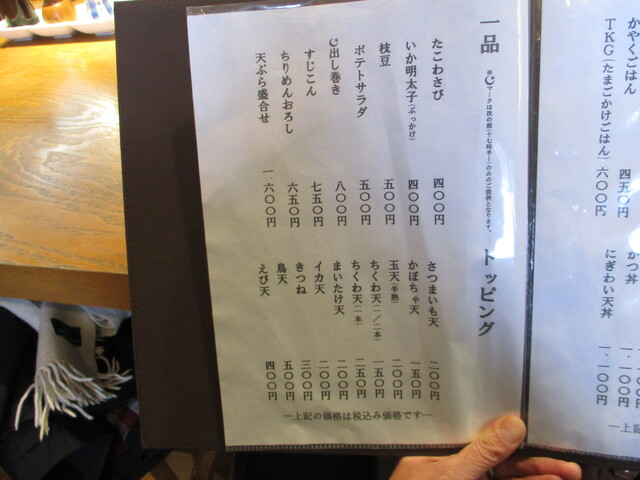 かやくごはん 四五〇円
TKG(たまごかけごはん) 六〇〇円
かつ丼
にぎわい天丼 一、一〇〇円
一品
※☾マークは夜の部(十七時半〜)のみのご提供となります。
たこわさび 四〇〇円
いか明太子(ぶっかけ) 四〇〇円
枝豆 五〇〇円
ポテトサラダ 五〇〇円
☾出し巻き 八〇〇円
すじこん 七五〇円
ちりめんおろし 六五〇円
天ぷら盛合せ 一、六〇〇円
トッピング
さつまいも天 二〇〇円
かぼちゃ天 一五〇円
玉天(半熟) 二〇〇円
ちくわ天(一/二本) 一五〇円
ちくわ天(一本) 二五〇円
まいたけ天 二〇〇円
イカ天 二〇〇円
きつね 三〇〇円
鳥天 五〇〇円
えび天 四〇〇円
―上記の価格は税込み価格です―